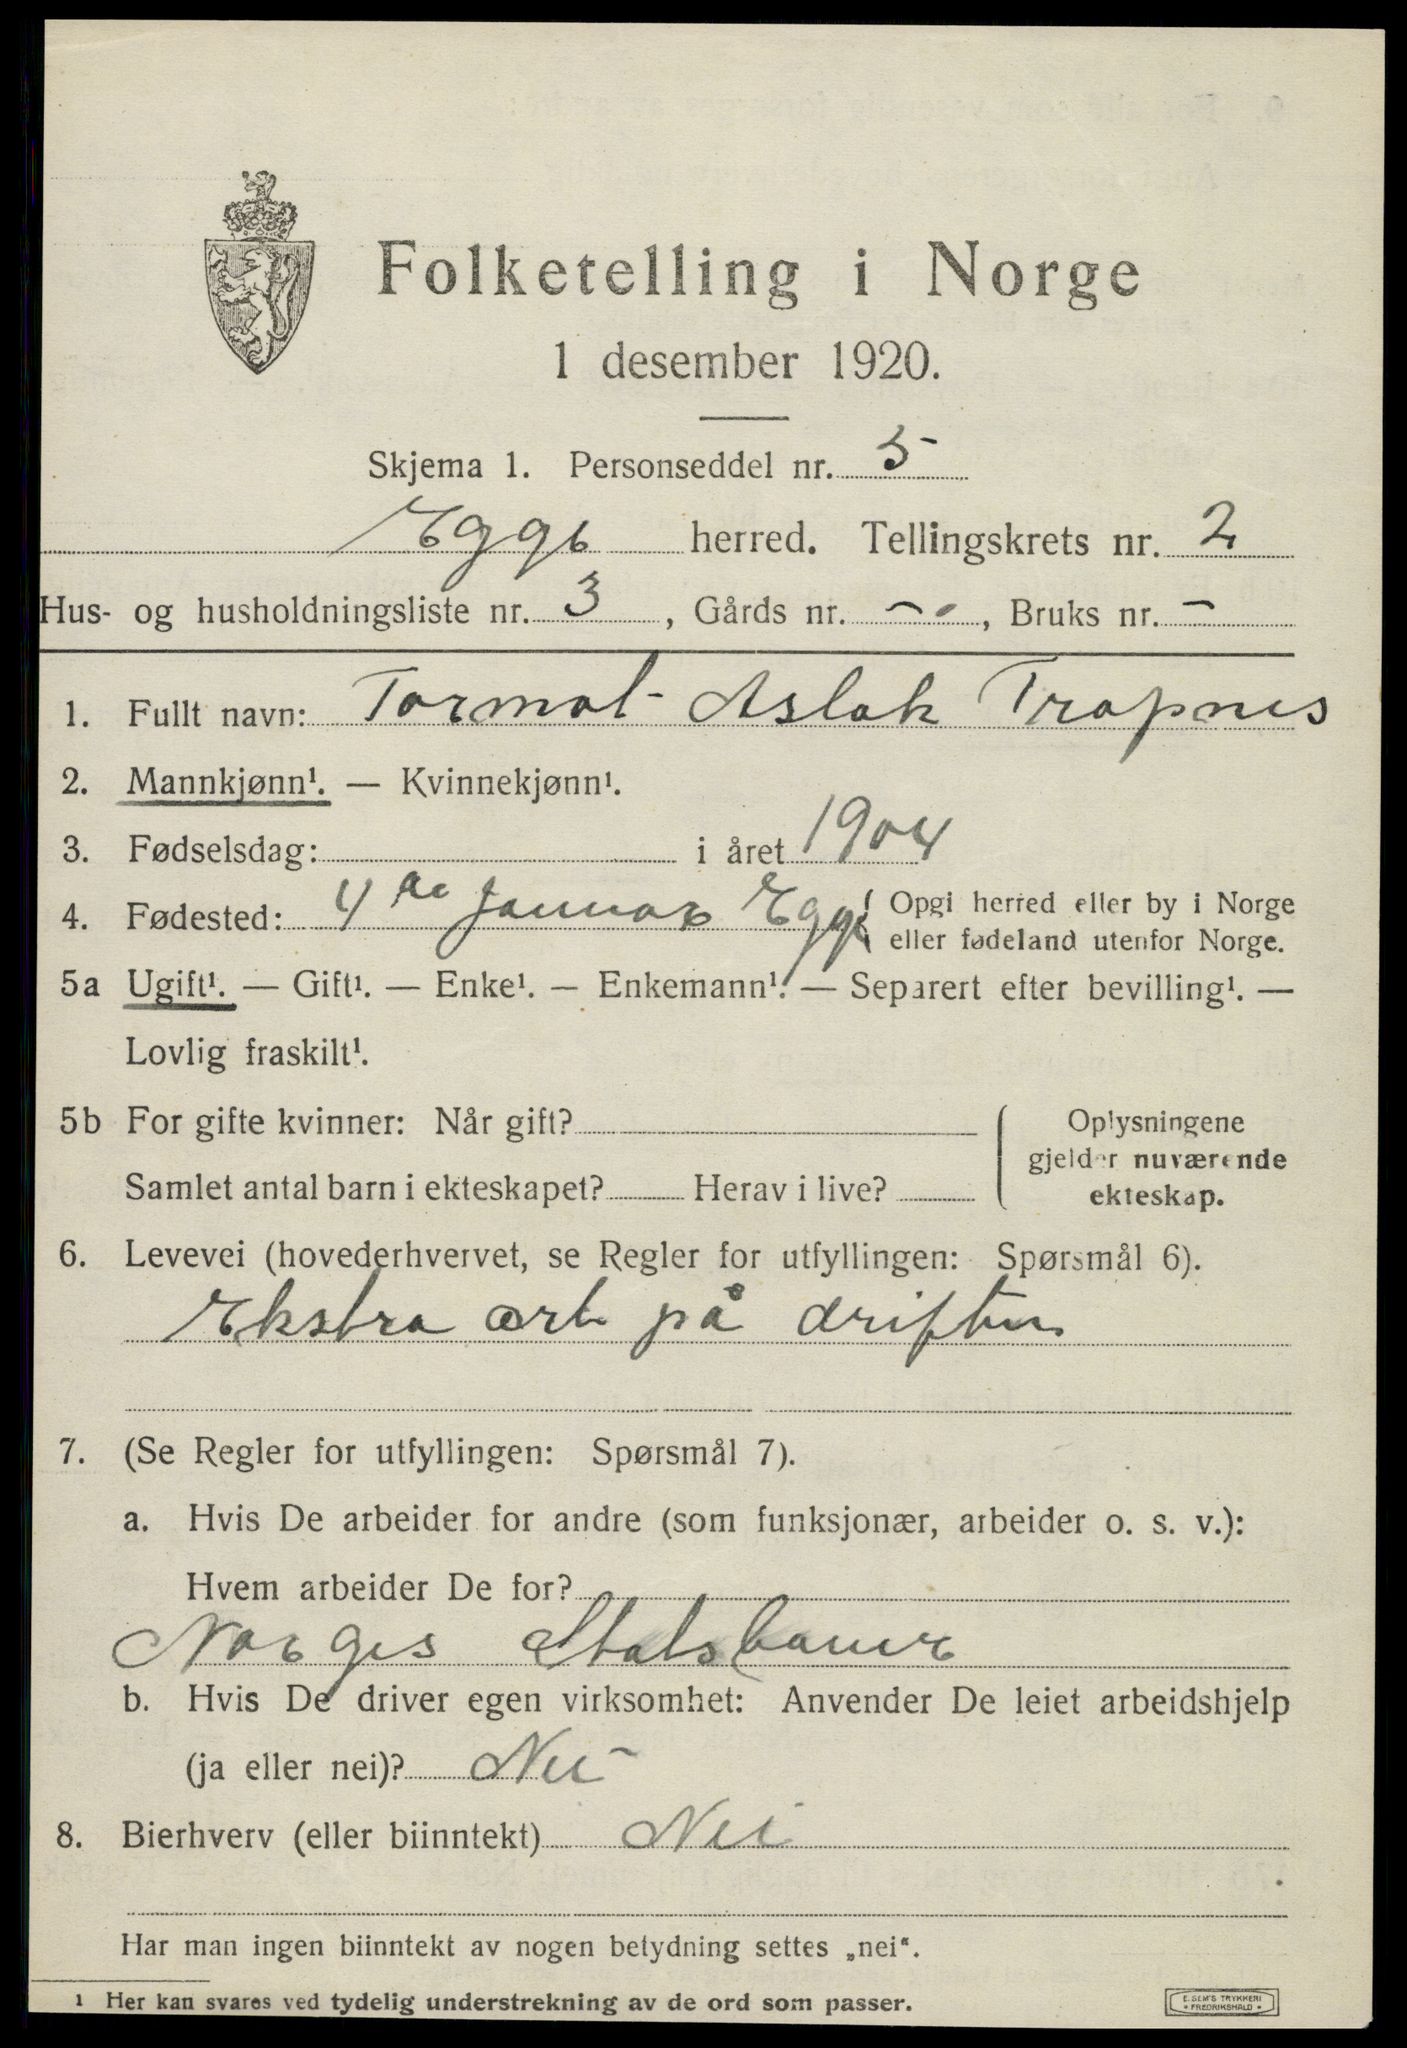 Folketelling i Norge
1 desember 1920.
Skjema 1. Personseddel nr. 5
Egge herred. Tellingskrets nr. 2
Hus- og husholdningsliste nr. 3, Gårds nr. -, Bruks nr. -
1. Fullt navn: Tormot Aslak Trapnes
2. Mannkjønn¹. — Kvinnekjønn¹.
3. Fødselsdag: i året 1904
4. Fødested: 4de Januar Egge { Opgi herred eller by i Norge
eller fødeland utenfor Norge.
5a Ugift¹. — Gift¹. — Enke¹. — Enkemann¹. — Separert efter bevilling¹. —
Lovlig fraskilt¹.
5b For gifte kvinner: Når gift?
Samlet antal barn i ekteskapet? Herav i live?
Oplysningene
gjelder nuværende
ekteskap.
6. Levevei (hovederhvervet, se Regler for utfyllingen: Spørsmål 6).
Ekstra arb på driften
7. (Se Regler for utfyllingen: Spørsmål 7).
a. Hvis De arbeider for andre (som funksjonær, arbeider o. s. v.):
Hvem arbeider De for?
Norges Statsbaner
b. Hvis De driver egen virksomhet: Anvender De leiet arbeidshjelp
(ja eller nei)? Nei
8. Bierhverv (eller biinntekt) Nei
Har man ingen biinntekt av nogen betydning settes „nei“.
1 Her kan svares ved tydelig understrekning av de ord som passer.
E. SEM'S TRYKKERI
FREDRIKSHALD